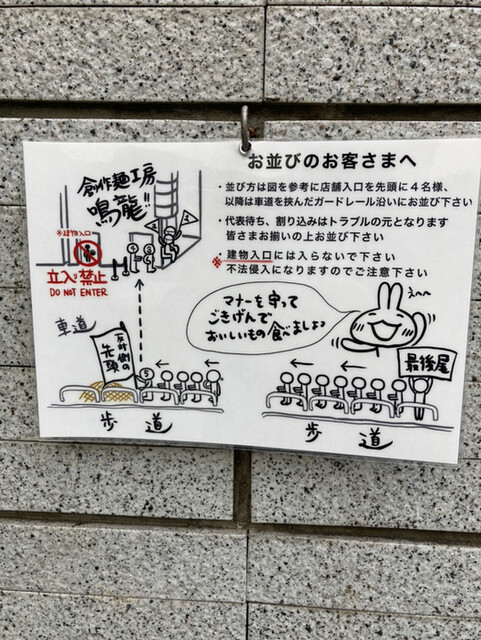 お並びのお客さまへ
・並び方は図を参考に店舗入口を先頭に4名様、
以降は車道を挟んだガードレール沿いにお並び下さい
・代表待ち、割り込みはトラブルの元となります
皆さまお揃いの上お並び下さい
・建物入口には入らないで下さい
※不法侵入になりますのでご注意下さい
創作麺工房
鳴龍!!
※建物入口
立入禁止
DO NOT ENTER
車道
反対側の
先頭
歩道
マナーを守って
ごきげんで
おいしいもの食べましょう
最後尾
歩道